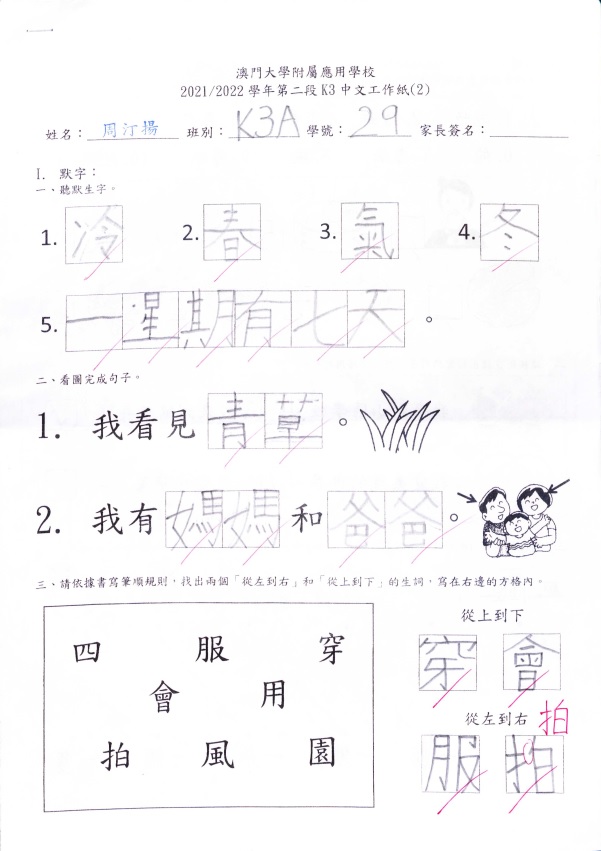 澳門大學附屬應用學校
2021/2022 學年第二段 K3 中文工作紙(2)
姓名：周汀揚 班別：K3A 學號：29 家長簽名：
I. 默字：
一、聽默生字。
1. 冷 2. 春 3. 氣 4. 冬
5. 一星期有七天。
二、看圖完成句子。
1. 我看見青草。
2. 我有媽媽和爸爸。
三、請依據書寫筆順規則，找出兩個「從左到右」和「從上到下」的生詞，寫在右邊的方格內。
四 服 穿
會 用
拍 風 園
從上到下
穿 會
從左到右 拍
服 拍